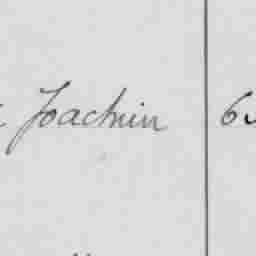 Joachin 6